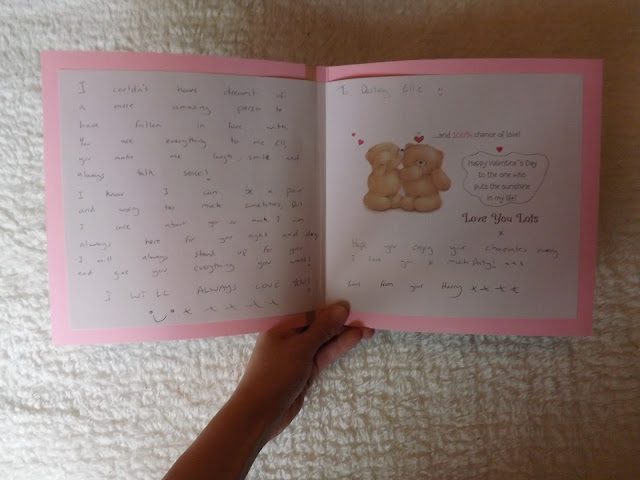 I couldn't have dreamt of
a more amazing person to
have fallen in love with.
You are everything to me
you make me laugh, smile and
always talk sense!
I know I can be a pain
and moan too much sometimes. But
I care about you so much I am
always here for you night and day
I will always stand up for you
and give you everything you want!
I WILL ALWAYS LOVE YOU!
x x x x x
To Darling Ellie
...and 100% chance of love!
Happy Valentine's Day
to the one who
puts the sunshine
in my life!
Love You Lots
x
Hope you enjoy your chocolates
I love you so much x x x
Love from your x x x x